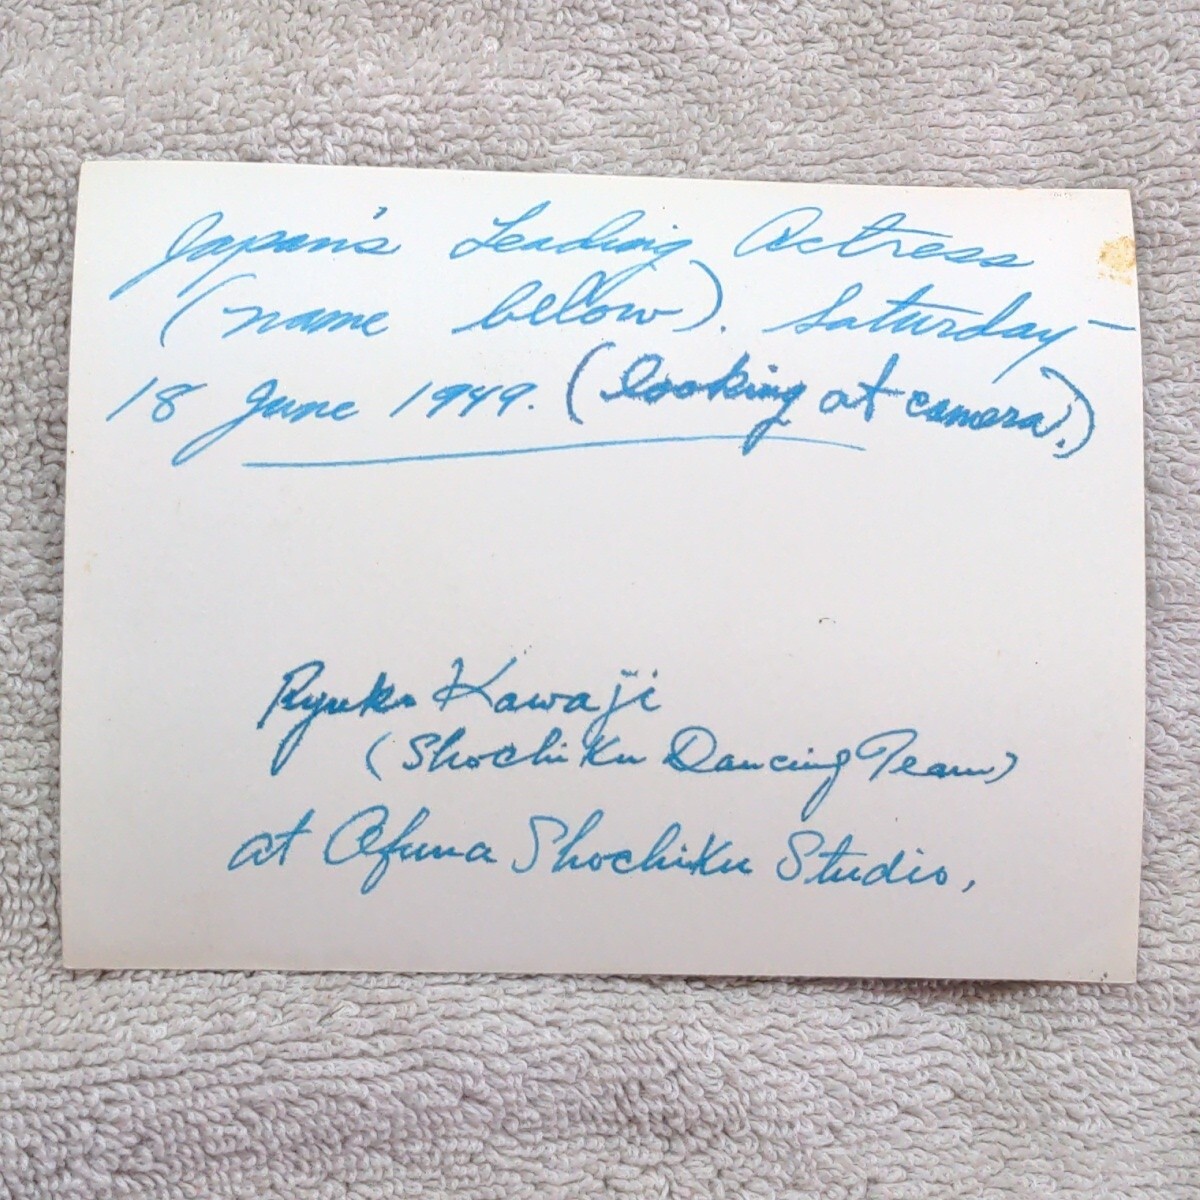 Japan's Leading Actress
(name below). Saturday –
18 June 1949. (looking at camera.)
Ryuko Kawaji
(Shochiku Dancing Team)
at Ofuna Shochiku Studio,